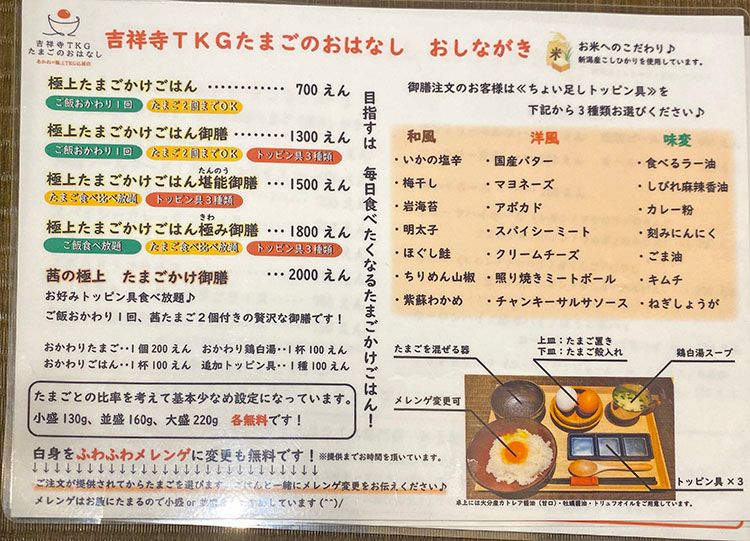 吉祥寺TKG
たまごのおはなし
吉祥寺TKGたまごのおはなし おしながき
米
お米へのこだわり♪
新潟産こしひかりを使用しています。
極上たまごかけごはん ………… 700えん
ご飯おかわり1回 たまご2個までOK
極上たまごかけごはん御膳 …… 1300えん
ご飯おかわり1回 たまご2個までOK トッピン具3種類
たんのう
極上たまごかけごはん堪能御膳 …1500えん
たまご食べ比べ放題 トッピン具3種類
きわ
極上たまごかけごはん極み御膳 …1800えん
ご飯食べ放題 たまご食べ比べ放題 トッピン具3種類
茜の極上 たまごかけ御膳 …2000えん
お好みトッピン具食べ放題♪
ご飯おかわり1回、茜たまご2個付きの贅沢な御膳です!
おかわりたまご‥1個200えん おかわり鶏白湯‥1杯100えん
おかわりごはん‥1杯100えん 追加トッピン具‥1種100えん
たまごとの比率を考えて基本少なめ設定になっています。
小盛130g、並盛160g、大盛220g 各無料です!
白身をふわふわメレンゲに変更も無料です!※提供までお時間を頂いています。
↓↓↓↓↓↓↓↓↓↓↓↓↓↓↓↓↓↓
ご注文が提供されてからたまごを選びます。ごはんと一緒にメレンゲ変更をお伝えください♪
メレンゲはお腹にたまるので小盛or並
しています(^^)/
目指すは 毎日食べたくなるたまごかけごはん!
御膳注文のお客様は≪ちょい足しトッピン具≫を
下記から3種類お選びください♪
和風
・いかの塩辛
・梅干し
・岩海苔
・明太子
・ほぐし鮭
・ちりめん山椒
・紫蘇わかめ
洋風
・国産バター
・マヨネーズ
・アボカド
・スパイシーミート
・クリームチーズ
・照り焼きミートボール
・チャンキーサルサソース
味変
・食べるラー油
・しびれ麻辣香油
・カレー粉
・刻みにんにく
・ごま油
・キムチ
・ねぎしょうが
たまごを混ぜる器
上皿:たまご置き
下皿:たまご殻入れ
鶏白湯スープ
メレンゲ変更可
トッピン具×3
卓上には大分産カトレア醤油(甘口)・牡蠣醤油・トリュフオイルをご用意しています。